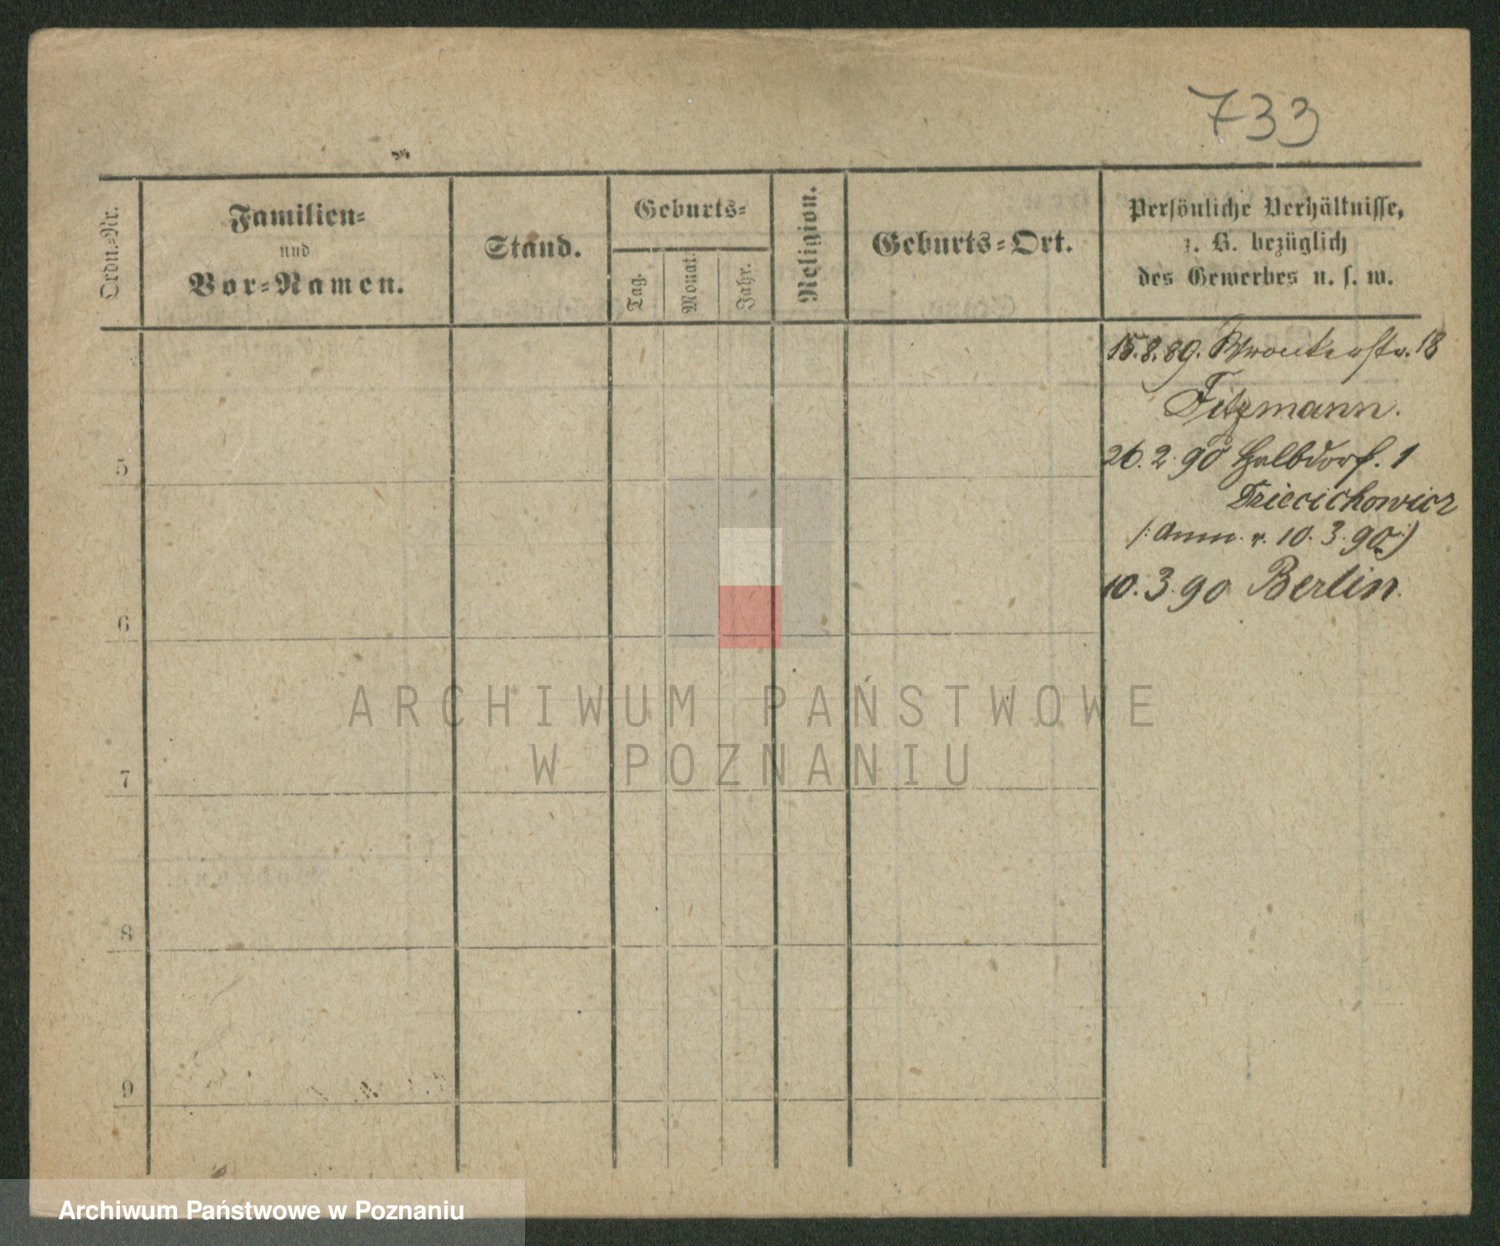 733
Ordn.-Nr.
Familien-
und
Vor-Namen.
Stand.
Geburts-
Tag.
Monat.
Jahr.
Religion.
Geburts-Ort.
Persönliche Verhältnisse,
z. B. bezüglich
des Gewerbes u. s. w.
15.8.89. Wronkerstr. 18
Fitzmann.
26.2.90 Halbdorf. 1
Dziecichowicz
(: Anm. v. 10.3.90 :)
10.3.90 Berlin.
5
6
7
8
9
ARCHIWUM PAŃSTWOWE
W POZNANIU
Archiwum Państwowe w Poznaniu